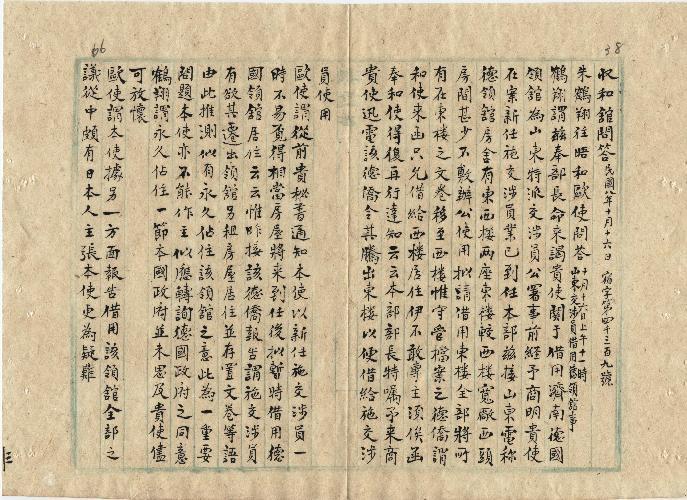 38
收和館問答 民國八年十月十六日 宿字第四千三百九號
朱鶴翔往晤和歐使問答 十月十六日上午十一時 山東交涉員借用德領館事
鶴翔謂茲奉部長命來謁貴使關于借用濟南德國
領館為山東特派交涉員公署事前經予商明貴使
在案新任施交涉員業已到任本部茲接山東電称
德領館房舍有東西樓兩座東樓較西樓寬廠西頭
房間甚少不敷辦公使用拟請借用東樓全部將所
有在東樓之文卷移至西樓惟守管檔案之德僑謂
和使來函只允借給西樓居住伊不敢專主須俟函
奉和使得復再行達知云云本部部長特囑予來商
貴使迅電該德僑令其騰出東樓以便借給施交涉
員使用
歐使謂從前貴秘書通知本使以新任施交涉員一
時不易覓得相當房屋將來到任後拟暫時借用德
國領館居住云云惟昨接該德僑報告謂施交涉員
有欲其遷出領館另租房屋居住並存置文卷等語
由此推測似有永久佔住該領館之意此為一重要
問題本使亦不能作主似應轉詢德國政府之同意
鶴翔謂永久佔住一節本國政府並未思及貴使儘
可放懷
歐使謂本使據另一方面報告借用該領館全部之
議從中頗有日本人主張本使更為疑難
66
三